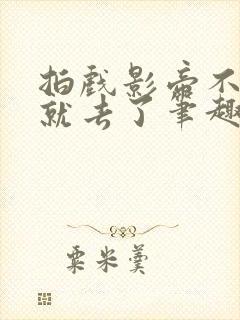 拍戏影帝不
就去了笔趣
粟米羹